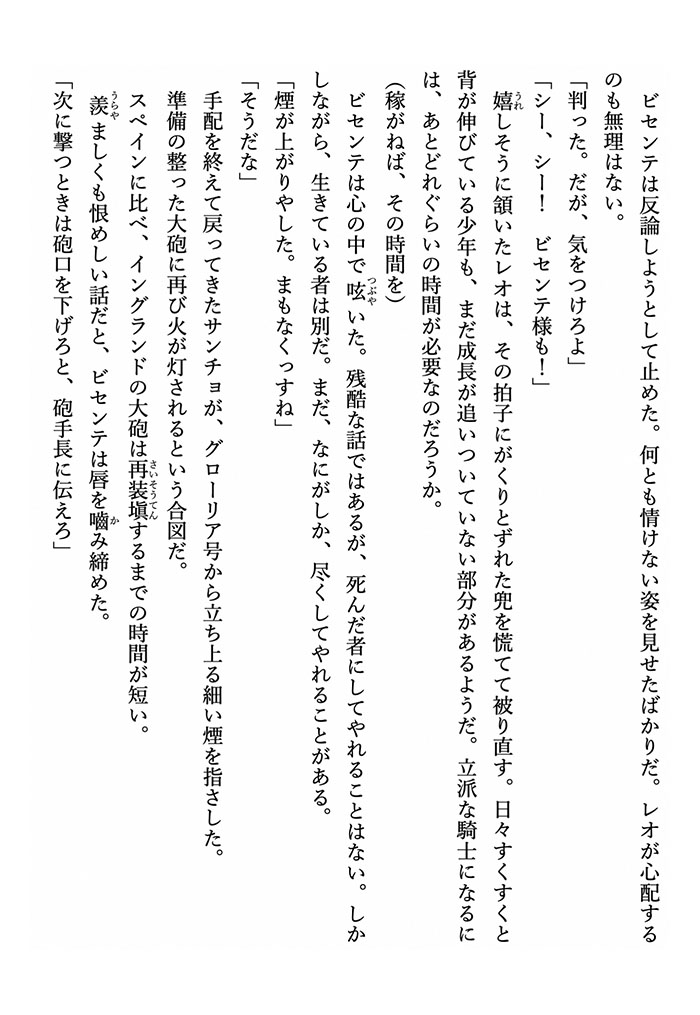 ビセンテは反論しようとして止めた。何とも情けない姿を見せたばかりだ。レオが心配する
のも無理はない。
「判った。だが、気をつけろよ」
「シー、シー！　ビセンテ様も！」
嬉しそうに頷いたレオは、その拍子にがくりとずれた兜を慌てて被り直す。日々すくすくと
背が伸びている少年も、まだ成長が追いついていない部分があるようだ。立派な騎士になるに
は、あとどれぐらいの時間が必要なのだろうか。
（稼がねば、その時間を）
ビセンテは心の中で呟いた。残酷な話ではあるが、死んだ者にしてやれることはない。しか
しながら、生きている者は別だ。まだ、なにがしか、尽くしてやれることがある。
「煙が上がりやした。まもなくっすね」
「そうだな」
手配を終えて戻ってきたサンチョが、グローリア号から立ち上る細い煙を指さした。
準備の整った大砲に再び火が灯されるという合図だ。
スペインに比べ、イングランドの大砲は再装塡するまでの時間が短い。
羨ましくも恨めしい話だと、ビセンテは唇を嚙み締めた。
「次に撃つときは砲口を下げろと、砲手長に伝えろ」